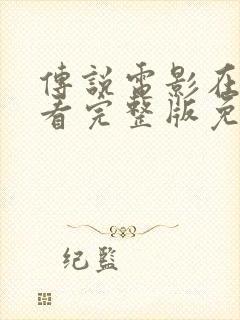 傳說電影在
看完整版免
纪监